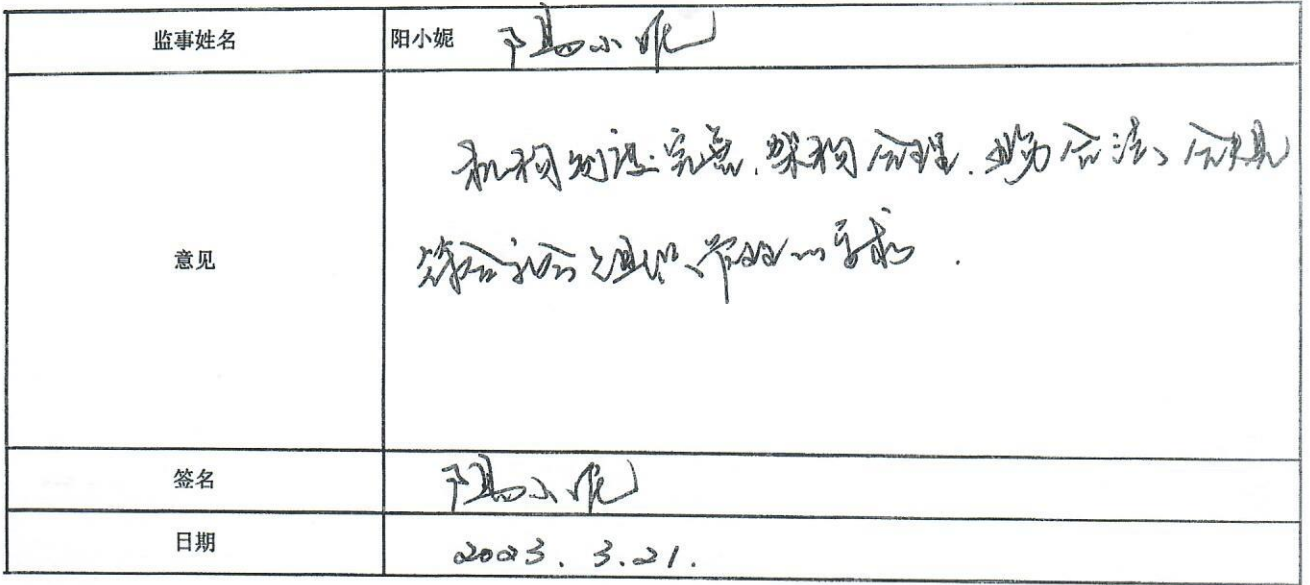 监事姓名 阳小妮 阳小妮
机构制度完善,架构合理,业务合法、合规
意见
符合社会组织管理的要求.
签名 阳小妮
日期 2023.3.21.